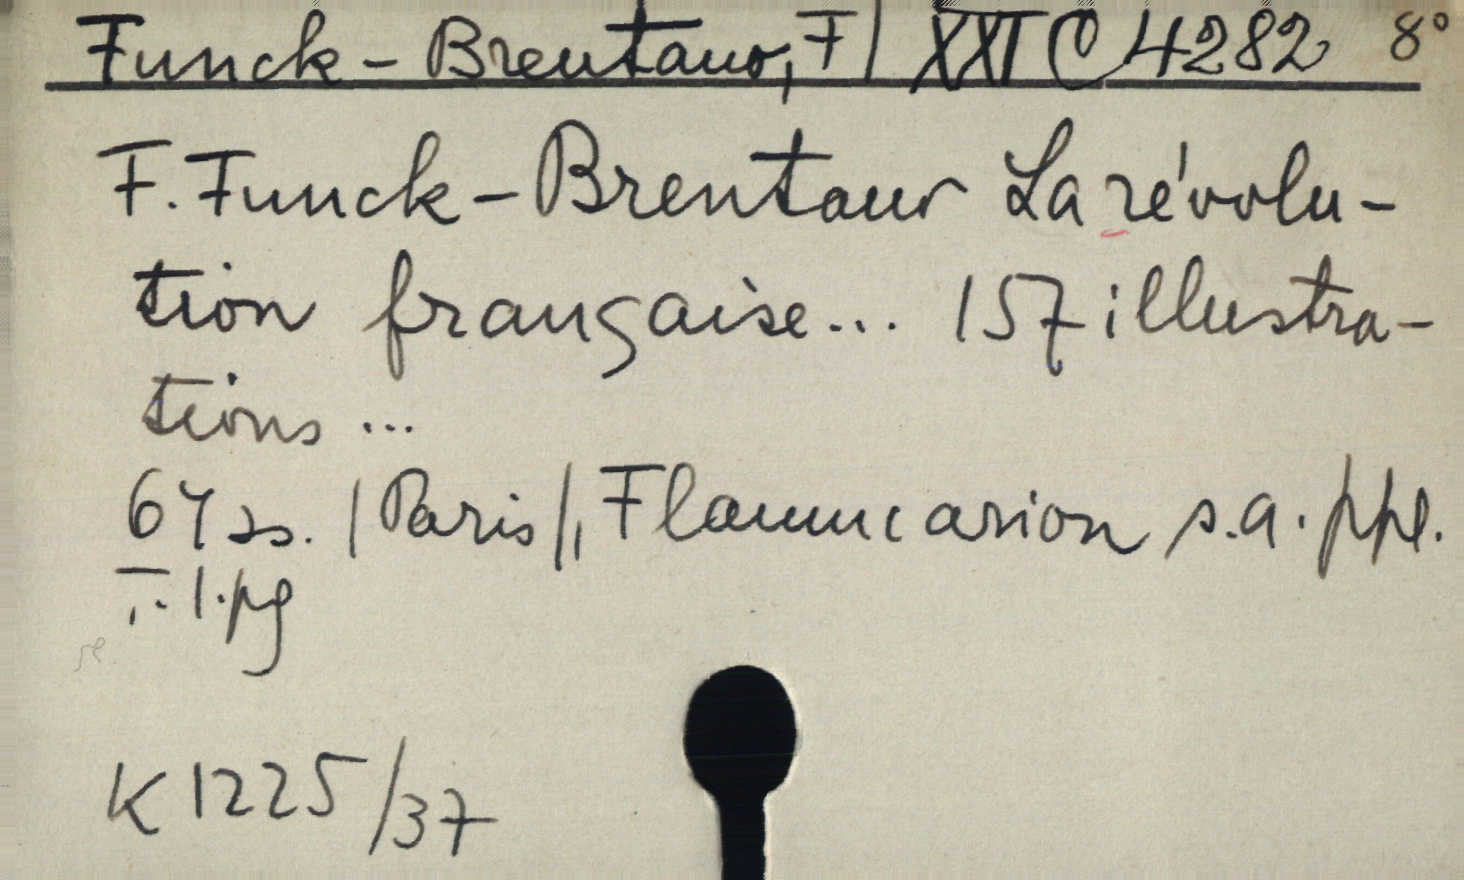 Funck-Brentano, F| XXI C 4282 8°
F. Funck-Brentano La révolu-
tion française... 157 illustra-
tions...
64 ss. |Paris|, Flammarion s.a. ppl.
I. 1. pg
K 1225/37